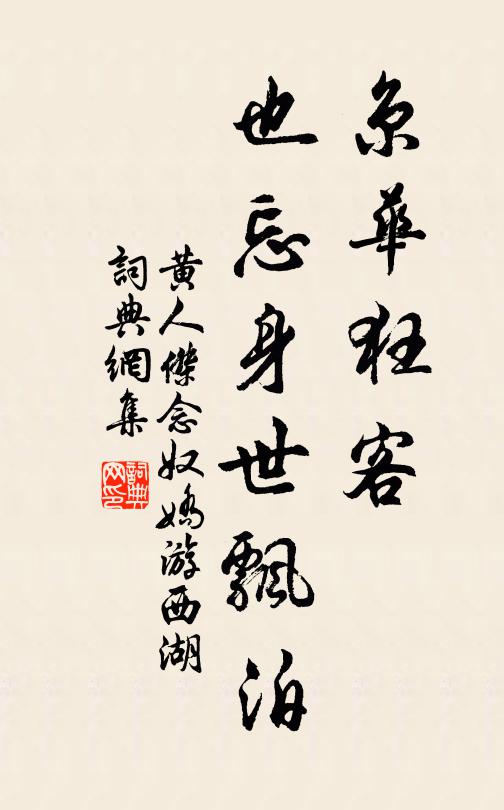 京華狂客
也忘身世飄泊
黄人傑念奴嬌游西湖
詞典網集
詞典網印